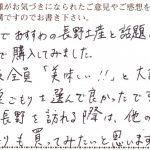 様がお気づきになられたご意見やご感想を
構ですのでお書き下さい。
でおすすめの長野土産と話題に
で購入してみました。
全員「美味しい!!」と大
ごもりを選んで良かったです
長野を訪れる際は、他の
りも買ってみたいと思います